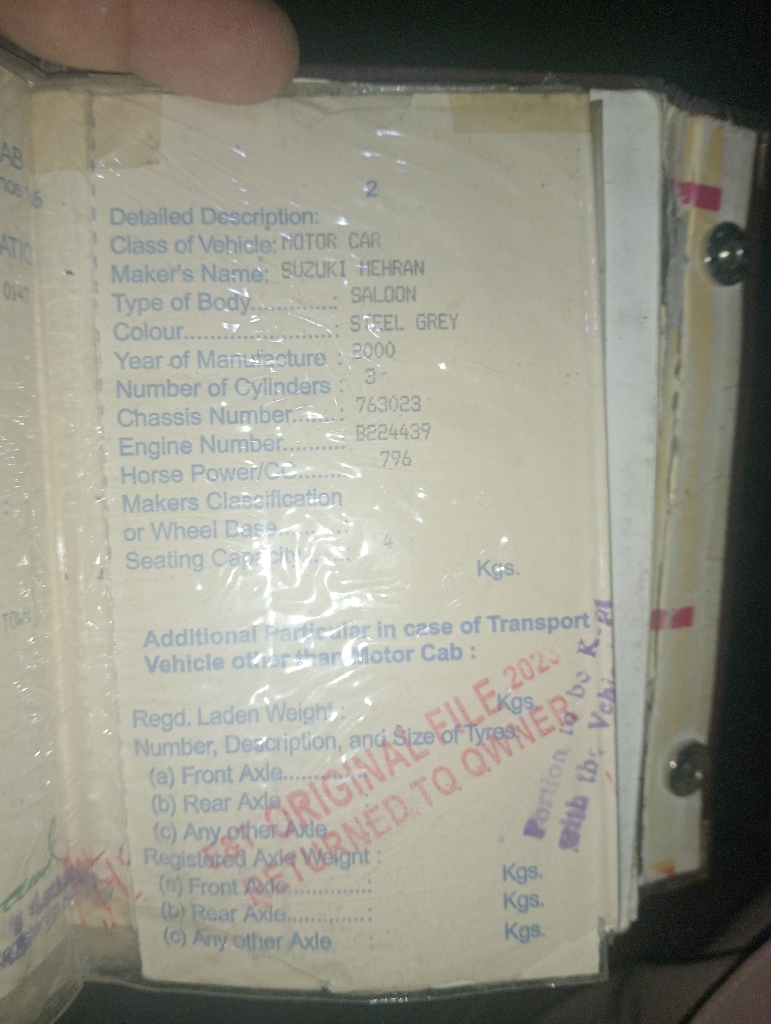 2
Detailed Description:
Class of Vehicle: MOTOR CAR
Maker's Name: SUZUKI MEHRAN
Type of Body............: SALOON
Colour......................: STEEL GREY
Year of Manufacture : 2000
Number of Cylinders : 3
Chassis Number.......: 763023
Engine Number.......... B224439
Horse Power/CC........ 796
Makers Classification
or Wheel Base..........:
Seating Capacity......: 4
Kgs.
Additional Particular in case of Transport
Vehicle other than Motor Cab :
Regd. Laden Weight : Kgs.
Number, Description, and Size of Tyres:
(a) Front Axle..............
(b) Rear Axle
(c) Any other Axle
Registered Axle Weight :
(a) Front Axle..............: Kgs.
(b) Rear Axle..............: Kgs.
(c) Any other Axle : Kgs.
ORIGINAL FILE
RETURNED TO OWNER
Portion to be Kept
With the